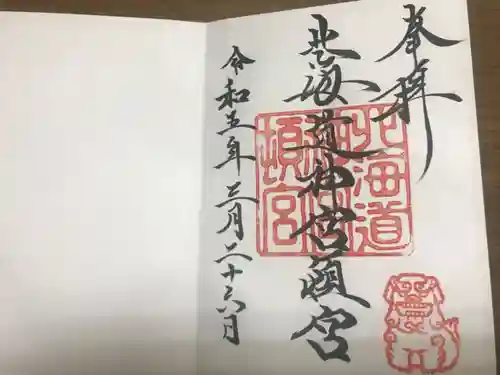 奉拝
北海道神宮頓宮
北海道神宮頓宮
令和五年三月二十六日